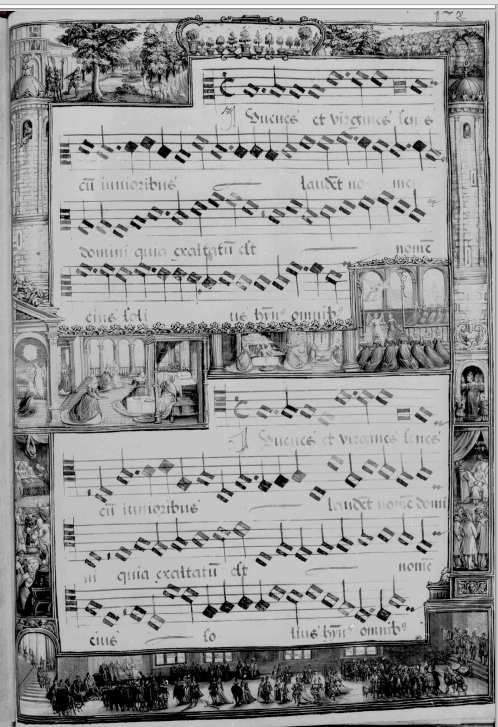 Iuuenes et virgines senes
cū iunioribus laudēt no me
domini quia exaltatū est nomē
eius soli us hyn⁹ omnib⁹
Iuuenes et virgines senes
cū iunioribus laudēt nomē domi
ni quia exaltatū est nomē
eius so lius hyn⁹ omnib⁹